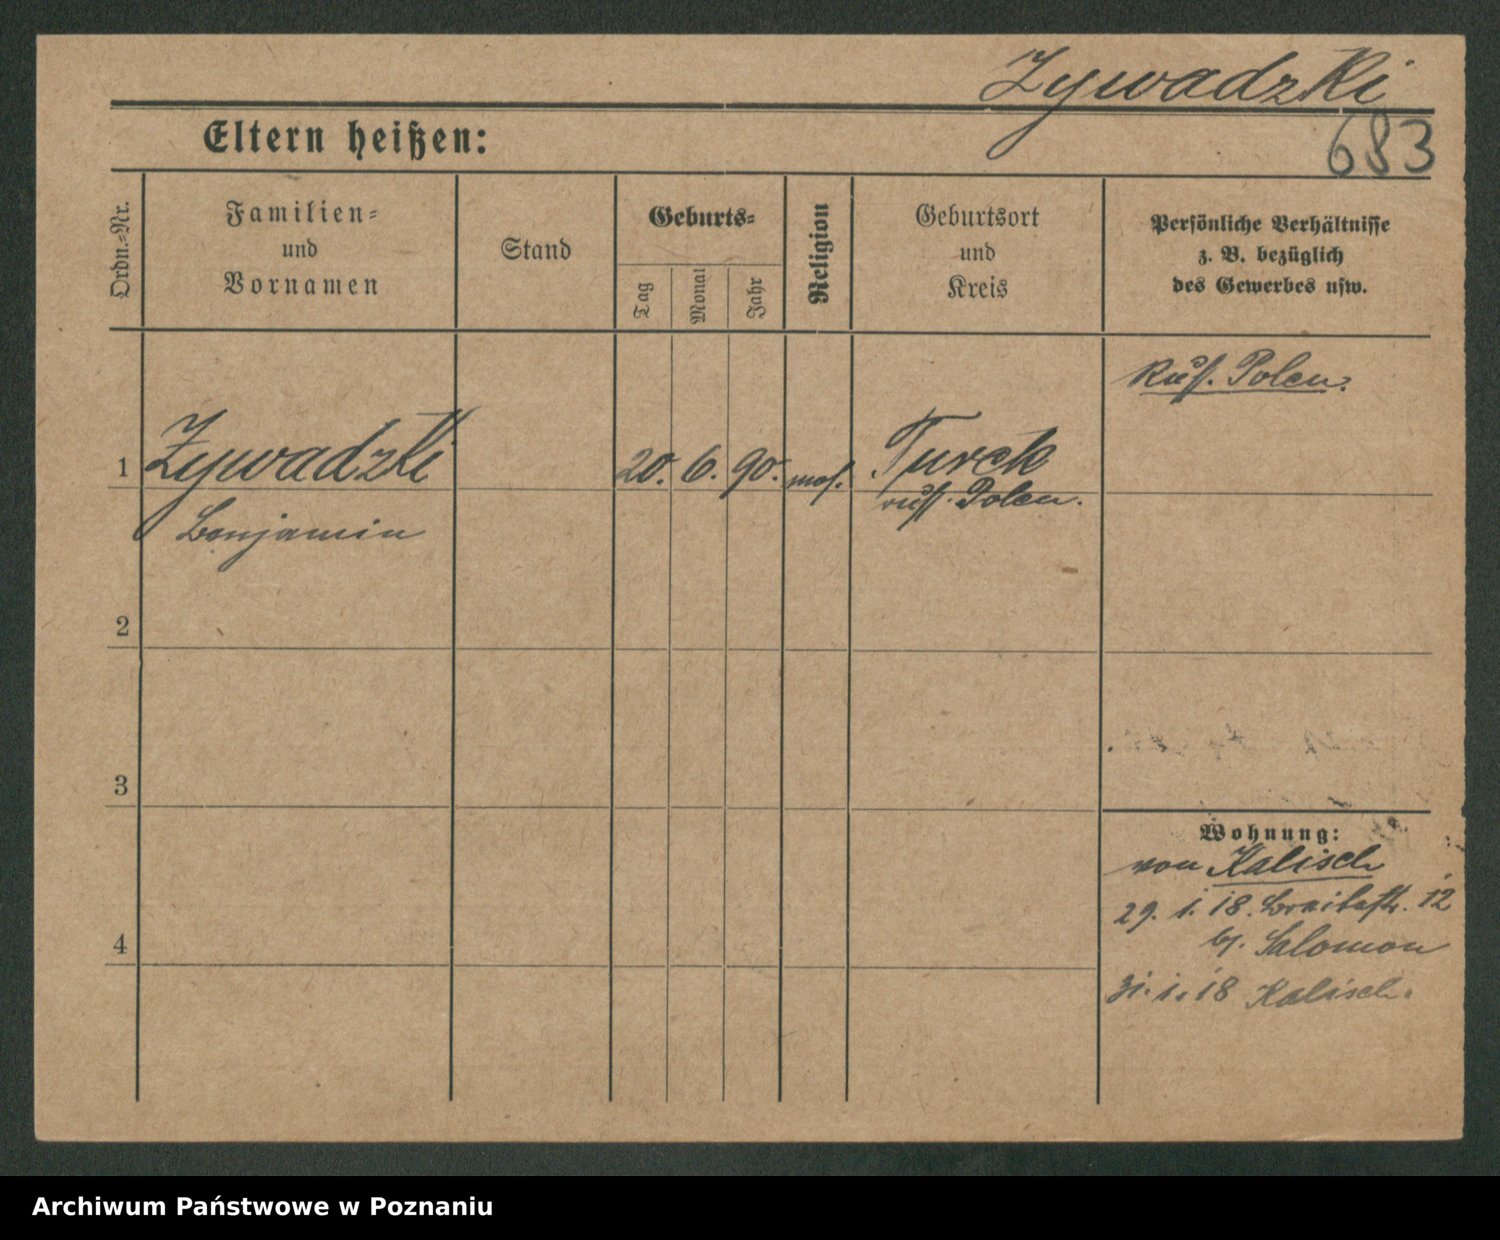 Zywadzki
683
Eltern heißen:
Ordn.-Nr.
Familien-
und
Vornamen
Stand
Geburts-
Tag
Monat
Jahr
Religion
Geburtsort
und
Kreis
Persönliche Verhältnisse
z. B. bezüglich
des Gewerbes usw.
Russ. Polen.
1 Zywadzki 20. 6. 90. mos. Turek
Benjamin russ. Polen.
2
3
4
Wohnung:
von Kalisch
29. 1. 18. Breitestr. 12
bj. Salomon
31. 1. 18 Kalisch.
Archiwum Państwowe w Poznaniu